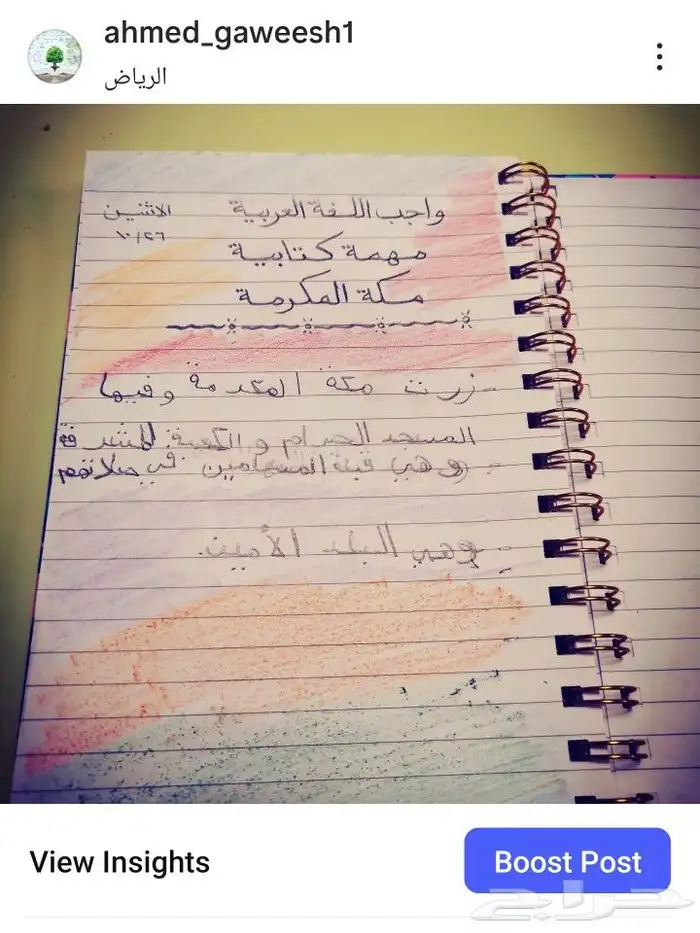 ahmed_gaweesh1
الرياض
واجب اللغة العربية الاثنين
١٠/٢٦
مهمة كتابية
مكة المكرمة
- زرت مكة المكرمة وفيها
المسجد الحرام والكعبة المشرفة
- وهي قبلة المسلمين في صلاتهم
- وهي البلد الأمين.
View Insights
Boost Post
حراج